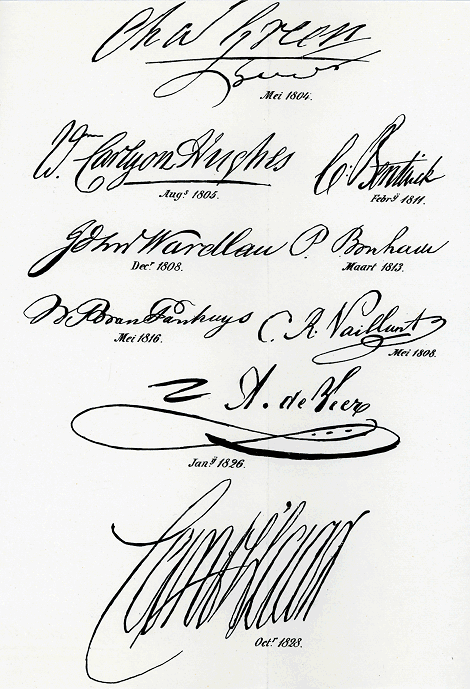 Chas Green
Mei 1804.
Wm Carlyon Hughes
Augs 1805.
C: Bentinck
Febry 1811.
John Wardlau
Decr 1808.
P. Bonham
Maart 1813.
W. B. van Panhuys
Mei 1816.
C. R. Vaillant
Mei 1808.
A. de Veer
Jany 1826.
Cantz'laar
Octr 1828.